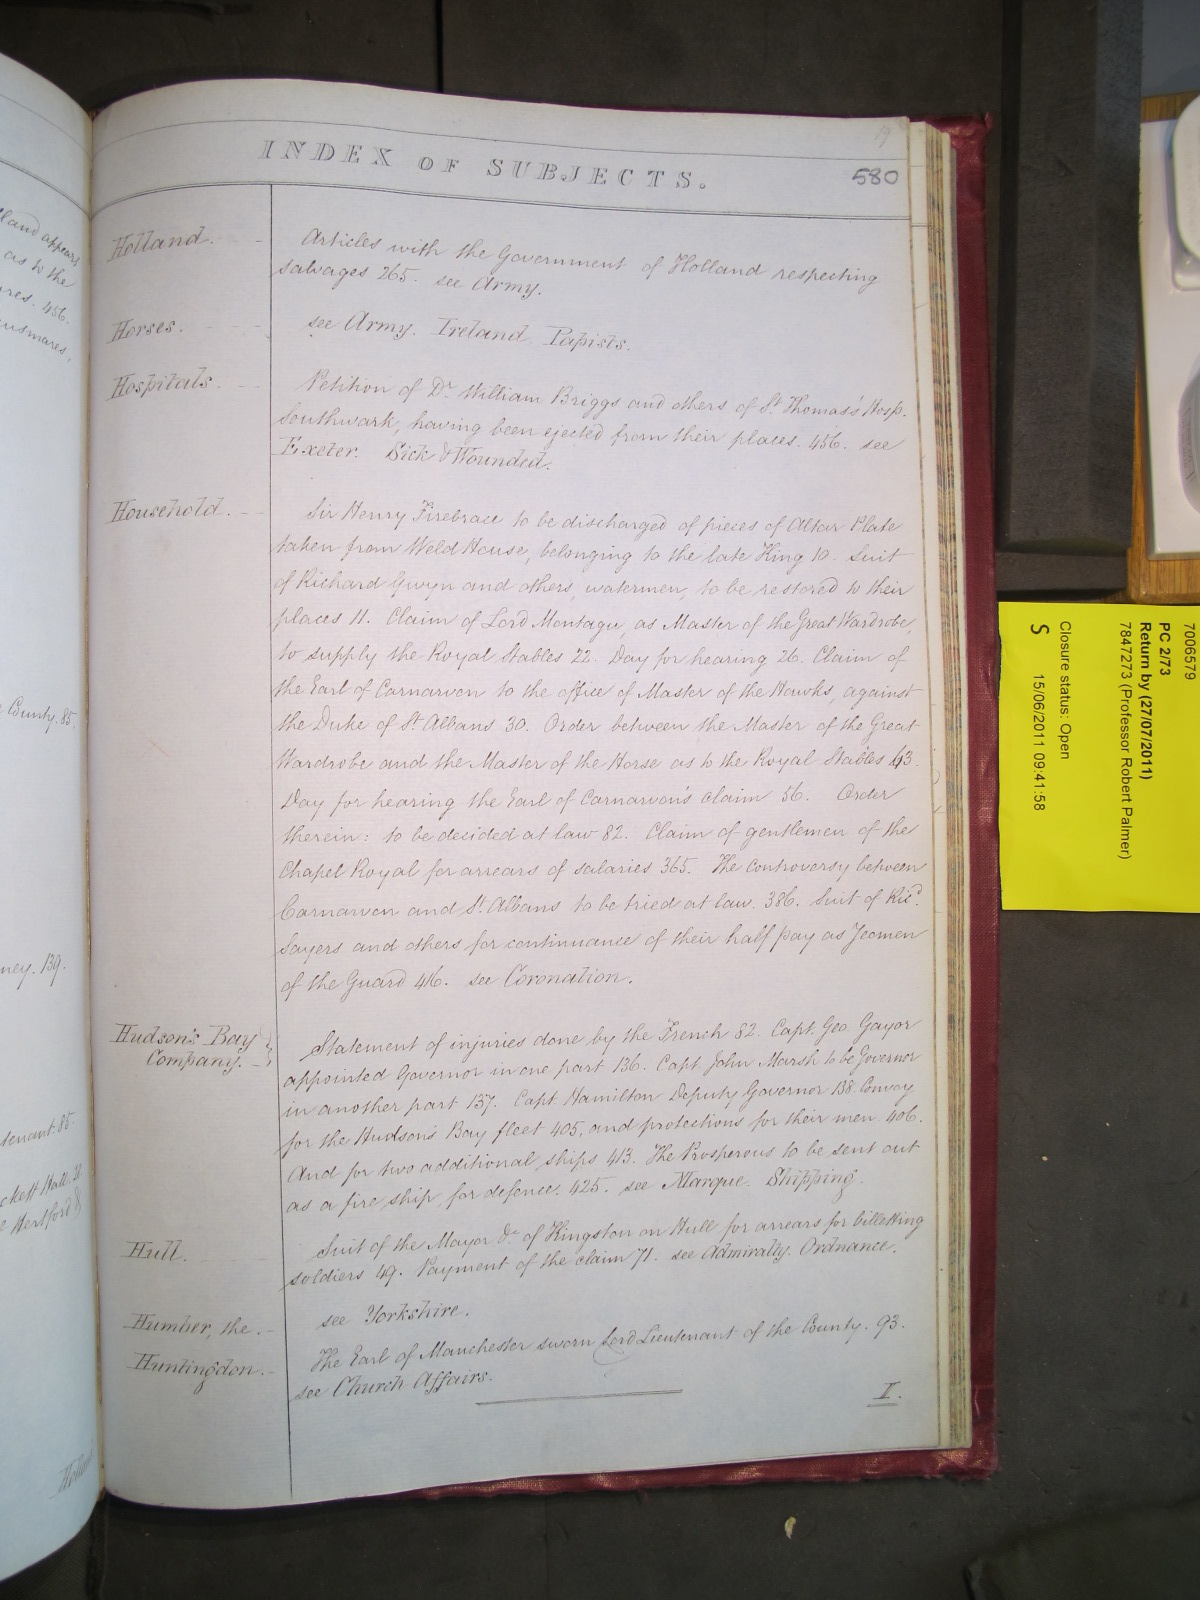 19
INDEX OF SUBJECTS.
580
Holland.
Articles with the Government of Holland respecting
salvages 265. see Army.
Horses.
see Army. Ireland. Papists.
Hospitals.
Petition of Dr. William Briggs and others of St. Thomas's Hosp.
Southwark, having been ejected from their places. 456. see
Exeter. Sick & Wounded.
Household.
Sir Henry Firebrace to be discharged of pieces of Altar Plate
taken from Weld House, belonging to the late King 10. Suit
of Richard Gwyn and others, watermen, to be restored to their
places 11. Claim of Lord Montagu, as Master of the Great Wardrobe,
to supply the Royal Stables 22. Day for hearing 26. Claim of
the Earl of Carnarvon to the office of Master of the Hawks, against
the Duke of St. Albans 30. Order between the Master of the Great
Wardrobe and the Master of the Horse as to the Royal Stables 43.
Day for hearing the Earl of Carnarvon's claim 56. Order
therein: to be decided at law 82. Claim of gentlemen of the
Chapel Royal for arrears of salaries 365. The controversy between
Carnarvon and St. Albans to be tried at law. 386. Suit of Ricd.
Sayers and others for continuance of their half pay as Yeomen
of the Guard 416. see Coronation.
Hudson's Bay
Company.
Statement of injuries done by the French 82. Capt. Geo. Gayor
appointed Governor in one part 136. Capt. John Marsh to be Governor
in another part 137. Capt. Hamilton Deputy Governor 138. Convoy
for the Hudson's Bay fleet 405, and protections for their men 406.
And for two additional ships 413. The Prosperous to be sent out
as a fire ship, for defence. 425. see Marque. Shipping.
Hull.
Suit of the Mayor &c. of Kingston on Hull for arrears for billetting
soldiers 49. Payment of the claim 71. see Admiralty. Ordnance.
Humber, the.
see Yorkshire.
Huntingdon.
The Earl of Manchester sworn Lord Lieutenant of the County. 93.
see Church Affairs.
I.
as to the
456.
County. 85
139.
tenant 85.
Hertford
7006579
PC 2/73
Return by (27/07/2011)
7847273 (Professor Robert Palmer)
Closure status: Open
S 15/06/2011 09:41:58